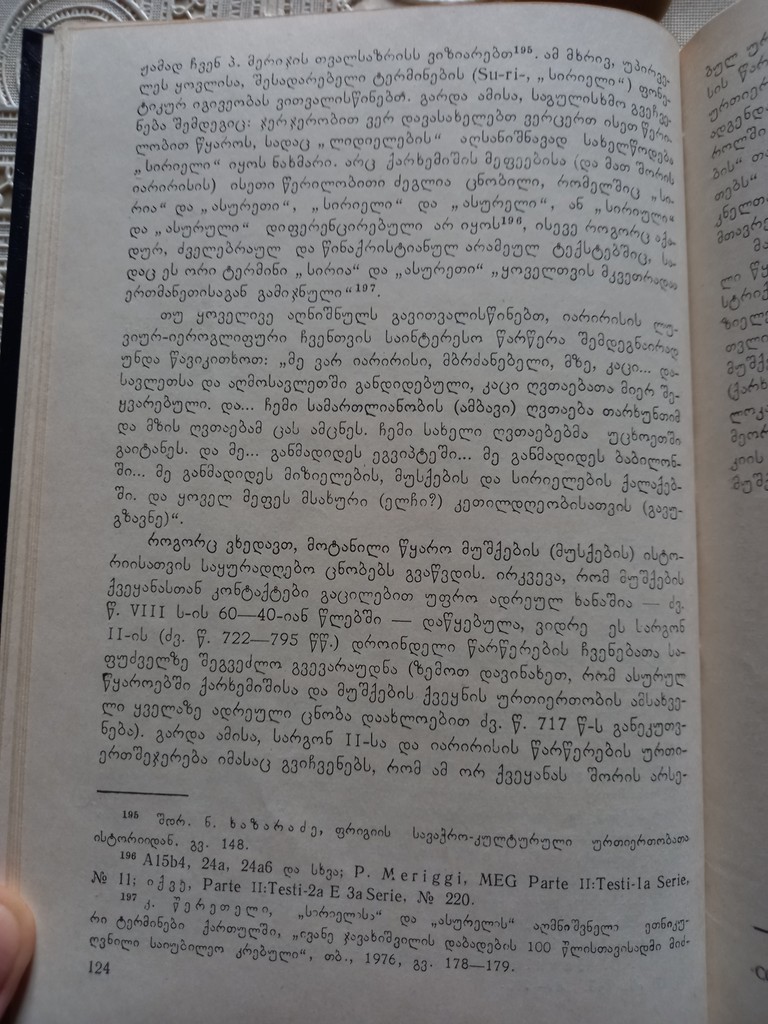 ჟამად ჩვენ პ. მერიჯის თვალსაზრისს ვიზიარებთ¹⁹⁵. ამ მხრივ, უპირვე-
ლეს ყოვლისა, შესადარებელი ტერმინების (Su-ri-, „სირიელი“) ფონე-
ტიკურ იგივეობას ვითვალისწინებთ. გარდა ამისა, საგულისხმო გვეჩვე-
ნება შემდეგიც: ჯერჯერობით ვერ დავასახელებთ ვერცერთ ისეთ წერი-
ლობით წყაროს, სადაც „ლიდიელების“ აღსანიშნავად სახელწოდება
„სირიელი“ იყოს ნახმარი. არც ქარხემიშის მეფეებისა (და მათ შორის
იარირისის) ისეთი წერილობითი ძეგლია ცნობილი, რომელშიც „სი-
რია“ და „ასურეთი“, „სირიელი“ და „ასურელი“, ან „სირიული“
და „ასურული“ დიფერენცირებული არ იყოს¹⁹⁶, ისევე როგორც აქა-
დურ, ძველებრაულ და წინაქრისტიანულ არამეულ ტექსტებშიც, სა-
დაც ეს ორი ტერმინი „სირია“ და „ასურეთი“ „ყოველთვის მკვეთრადაა
ერთმანეთისაგან გამიჯნული“¹⁹⁷.
თუ ყოველივე აღნიშნულს გავითვალისწინებთ, იარირისის ლუ-
ვიურ-იეროგლიფური ჩვენთვის საინტერესო წარწერა შემდეგნაირად
უნდა წავიკითხოთ: „მე ვარ იარირისი, მბრძანებელი, მზე, კაცი... და-
სავლეთსა და აღმოსავლეთში განდიდებული, კაცი ღვთაებათა მიერ შე-
ყვარებული. და... ჩემი სამართლიანობის (ამბავი) ღვთაება თარხუნთიმ
და მზის ღვთაებამ ცას ამცნეს. ჩემი სახელი ღვთაებებმა უცხოეთში
გაიტანეს. და მე... განმადიდეს ეგვიპტეში... მე განმადიდეს ბაბილონ-
ში... მე განმადიდეს მიზიელების, მუსქების და სირიელების ქალაქებ-
ში. და ყოველ მეფეს მსახური (ელჩი?) კეთილდღეობისათვის (გავუ-
გზავნე)“.
როგორც ვხედავთ, მოტანილი წყარო მუშქების (მუსქების) ისტო-
რიისათვის საყურადღებო ცნობებს გვაწვდის. ირკვევა, რომ მუშქების
ქვეყანასთან კონტაქტები გაცილებით უფრო ადრეულ ხანაშია — ძვ.
წ. VIII ს-ის 60—40-იან წლებში — დაწყებულა, ვიდრე ეს სარგონ
II-ის (ძვ. წ. 722—795 წწ.) დროინდელი წარწერების ჩვენებათა სა-
ფუძველზე შეგვეძლო გვევარაუდნა (ზემოთ დავინახეთ, რომ ასურულ
წყაროებში ქარხემიშისა და მუშქების ქვეყნის ურთიერთობის ამსახვე-
ლი ყველაზე ადრეული ცნობა დაახლოებით ძვ. წ. 717 წ-ს განეკუთვ-
ნება). გარდა ამისა, სარგონ II-სა და იარირისის წარწერების ურთი-
ერთშეჯერება იმასაც გვიჩვენებს, რომ ამ ორ ქვეყანას შორის არსე-
¹⁹⁵ შდრ. ნ. ხაზარაძე, ფრიგიის სავაჭრო-კულტურული ურთიერთობათა
ისტორიიდან. გვ. 148.
¹⁹⁶ A15b4, 24a, 24a6 და სხვა; P. Meriggi, MEG Parte II:Testi-1a Serie,
№ 11; იქვე, Parte II:Testi-2a E 3a Serie, № 220.
¹⁹⁷ კ. წერეთელი, „სირიელისა“ და „ასურელის“ აღმნიშვნელი ეთნიკუ-
რი ტერმინები ქართულში, „ივანე ჯავახიშვილის დაბადების 100 წლისთავისადმი მიძ-
ღვნილი საიუბილეო კრებული“, თბ., 1976, გვ. 178—179.
124